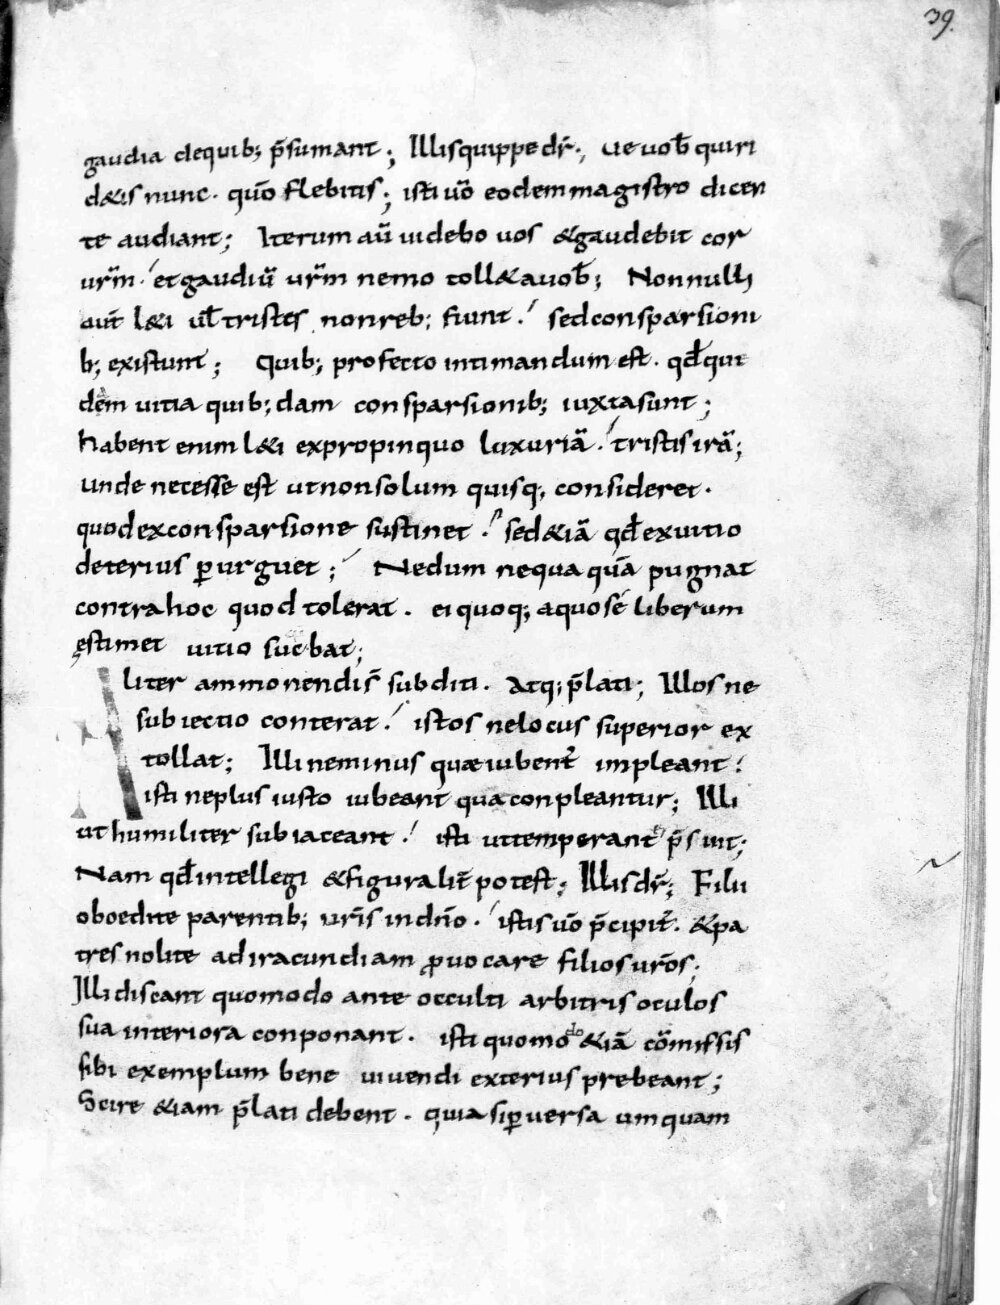 39.
gaudia dequib; p̄sumant; Illisquippe dr̄; ue uob̄ quiri
d&is nunc. quō flebitis; isti uō eodem magistro dicen
te audiant; Iterum aū uidebo uos &gaudebit cor
ur̄m. et gaudiū ur̄m nemo toll& a uob̄; Nonnulli
aut̄ l&i ul̄ tristes non reb; fiunt. sed consparsioni
b; existunt; Quib; profecto intimandum est. qd̄ qui
dem uitia quib;dam consparsionib; iuxta sunt;
habent enim l&i ex propinquo luxuriā. tristis irā;
unde necesse est ut non solum quisq; consideret.
quod ex consparsione sustinet. sed &iā qd̄ ex uitio
deterius ꝑurguet; Nedum nequaquā pugnat
contra hoc quod tolerat. ei quoq; a quo se liberum
ęstimet uitio sucbat;
Aliter ammonendis subditi. Atq; p̄lati; Illos ne
subiectio conterat. istos ne locus superior ex
tollat; Illi ne minus quæ iubent̄ impleant.
isti ne plus iusto iubeant qua conpleantur; Illi
ut humiliter subiaceant. isti ut temperant&#x364; p̄sint;
Nam qd̄ intellegi &figuralit̄ potest; Illis dr̄; Filii
oboedite parentib; ur̄is in dn̄o. istis uō p̄cipit̄. &pa
tres nolite ad iracundiam ꝓuocare filios ur̄os;
Illi discant quomodo ante occulti arbitris oculos
sua interiora conponant. isti quomodo &iā cōmissis
sibi exemplum bene uiuendi exterius prebeant;
Scire &iam p̄lati debent. quia si ꝑuersa umquam